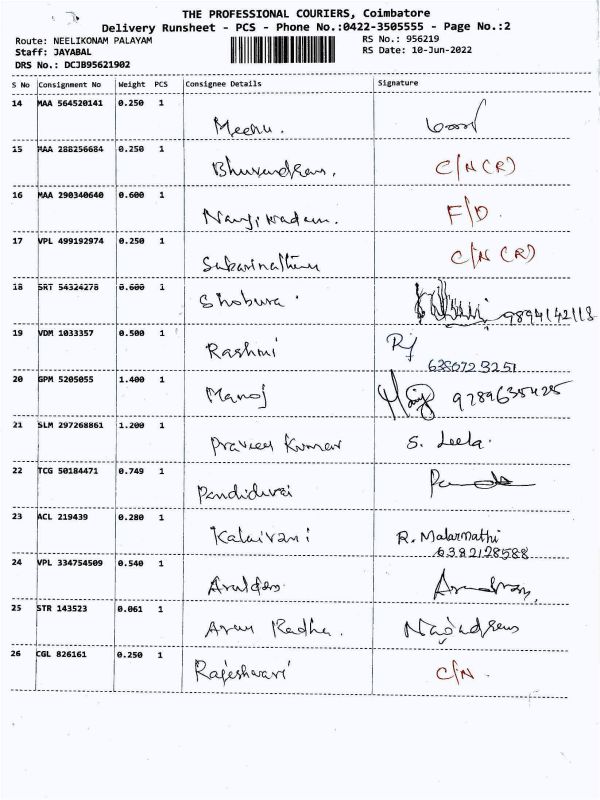 THE PROFESSIONAL COURIERS, Coimbatore
Delivery Runsheet - PCS - Phone No.:0422-3505555 - Page No.:2
Route: NEELIKONAM PALAYAM RS No.: 956219
Staff: JAYABAL RS Date: 10-Jun-2022
DRS No.: DCJB95621902
S No Consignment No Weight PCS Consignee Details Signature
14 MAA 564520141 0.250 1
Meenu.
15 MAA 288256684 0.250 1
C/N (R)
16 MAA 290340640 0.600 1
F/D.
17 VPL 499192974 0.250 1
C/N (R)
18 SRT 54324278 0.600 1
Shobura. 9894142118
19 VDM 1033357 0.500 1
Rashmi Rj
6380723251
20 GPM 5205055 1.400 1
Manoj 9789635425
21 SLM 297268861 1.200 1
Praveen Kumar S. Leela.
22 TCG 50184471 0.749 1
Pandidurai
23 ACL 219439 0.280 1
Kalaivani R. Malarmathi
6382128588
24 VPL 334754509 0.540 1
25 STR 143523 0.061 1
Arun Radha.
26 CGL 826161 0.250 1
Rajeshwari C/N.